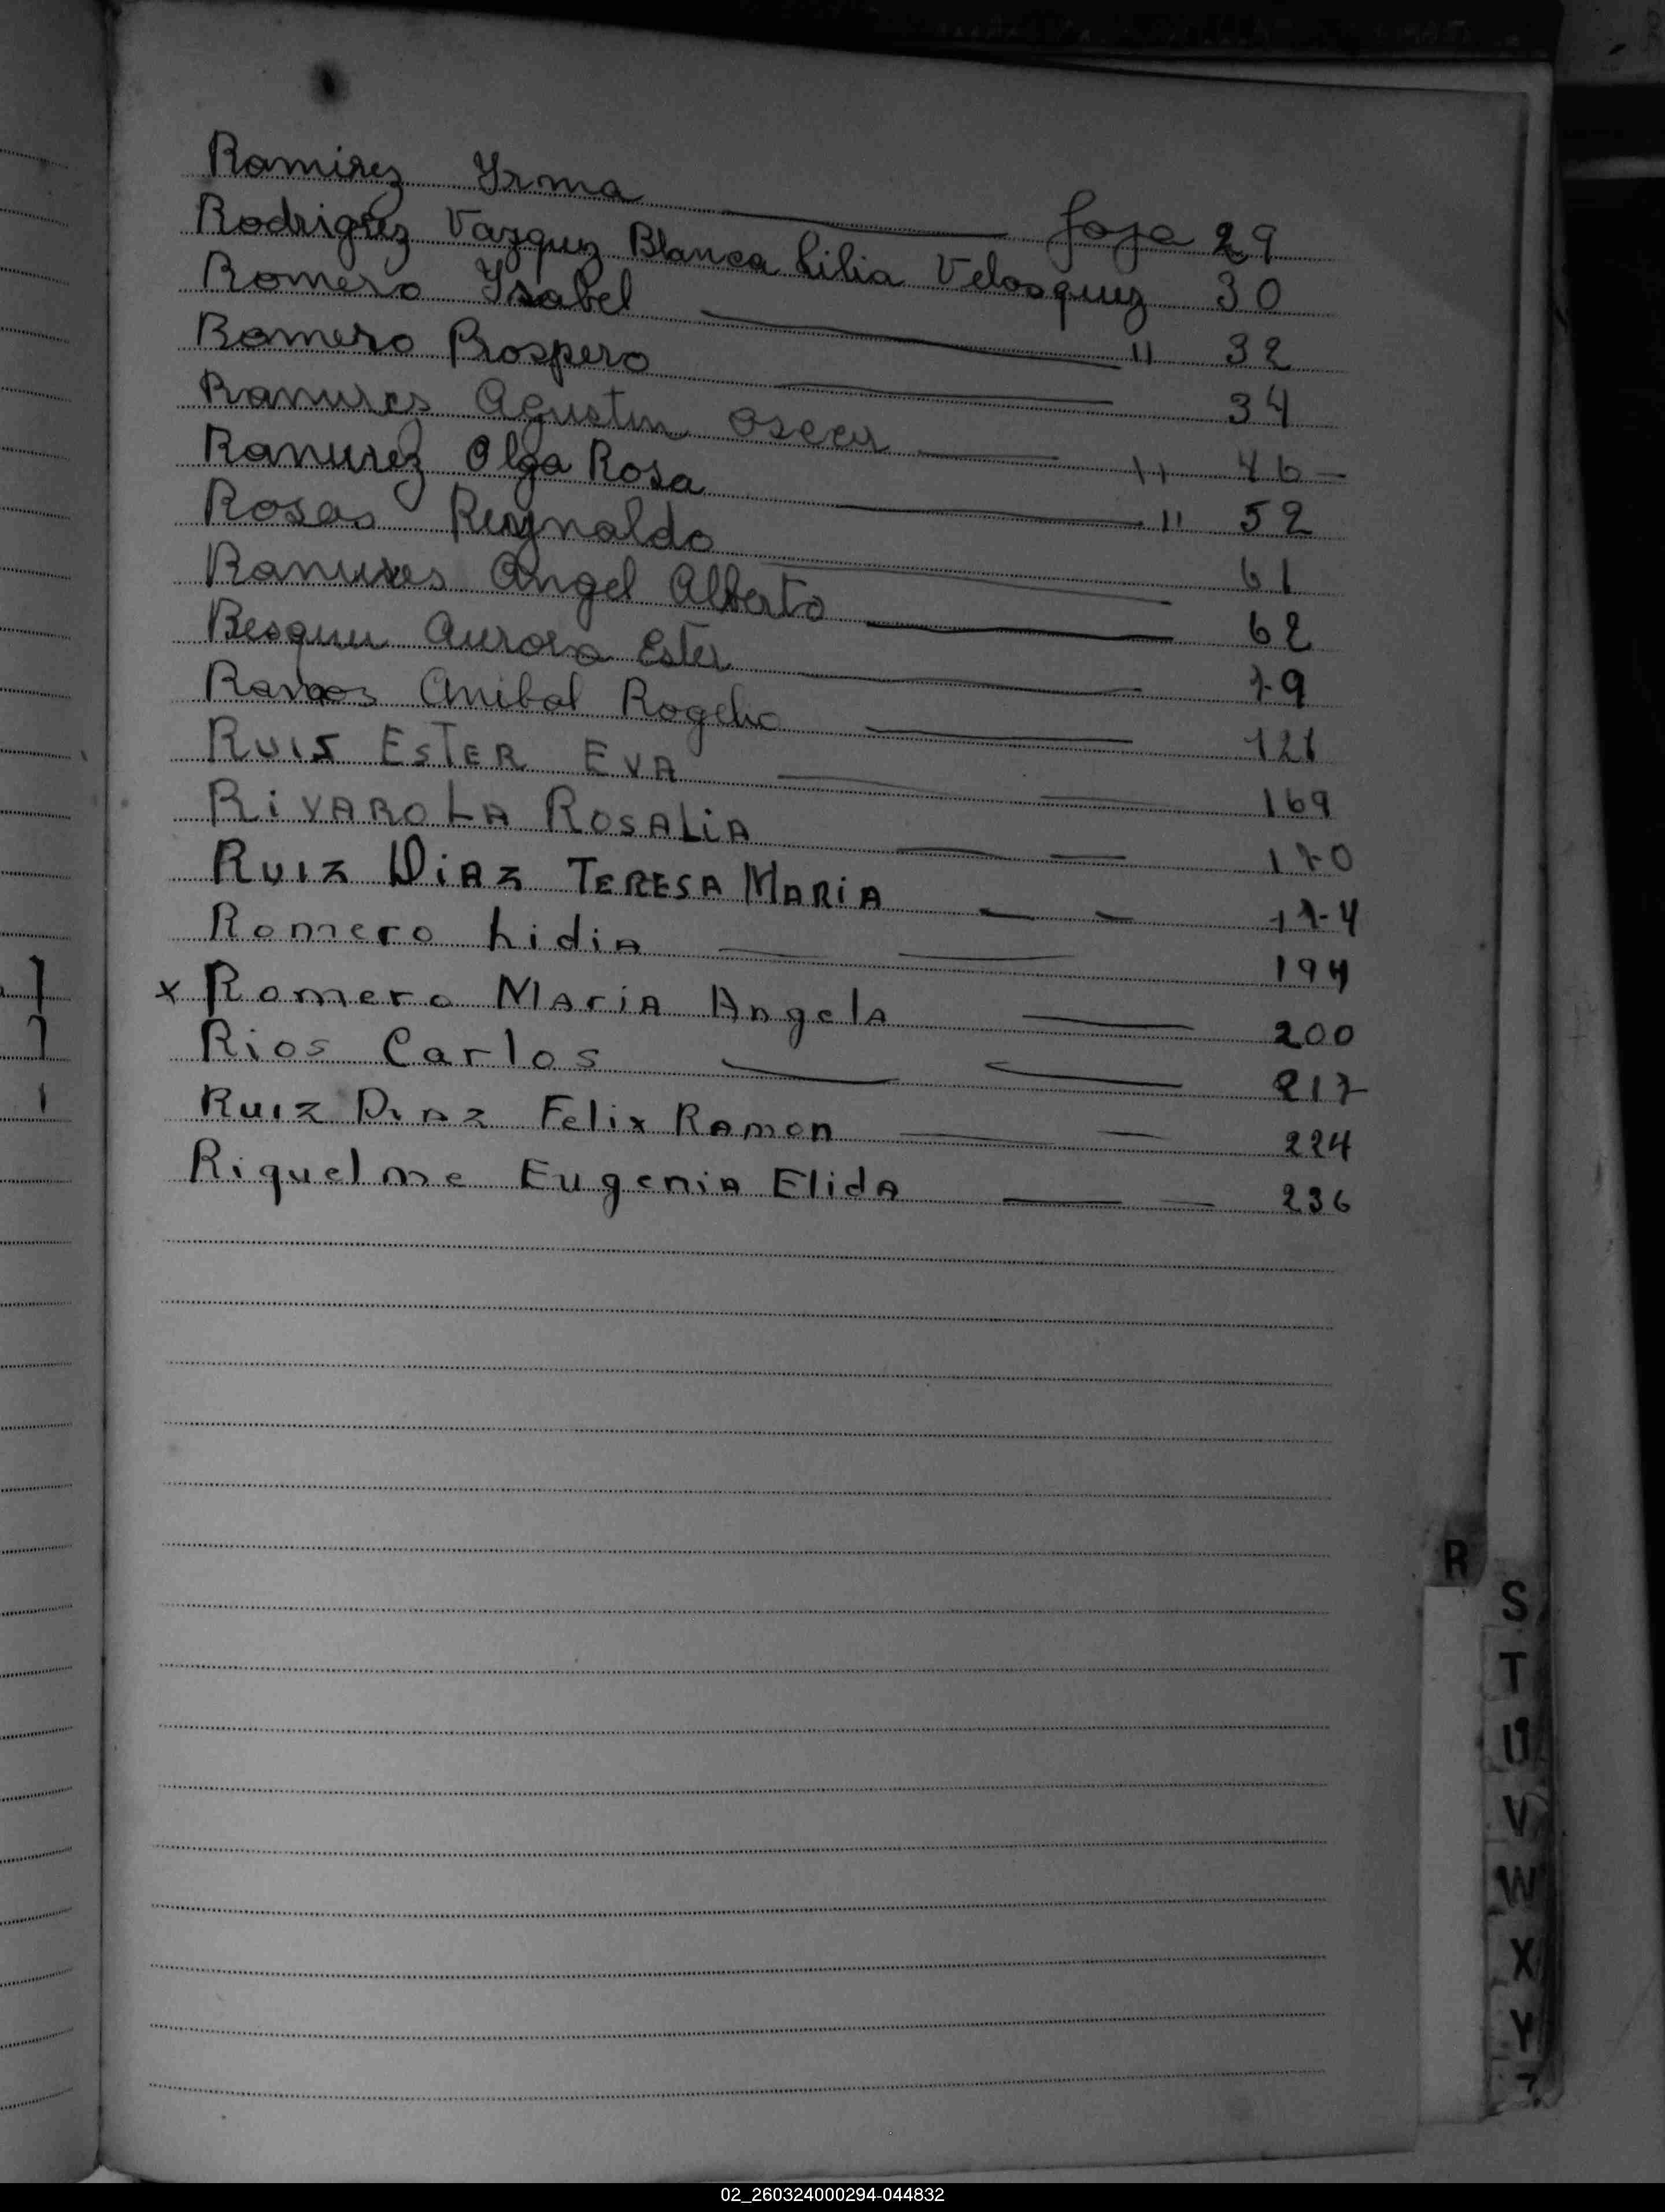 Ramirez Yrma foja 29
Rodrigrez Vazquez Blanca Lilia Velasquez 30
Romero Ysabel " 32
Romero Prospero 34
Ramires Agustin Oscar " 46
Ramirez Olga Rosa " 52
Rosas Reynaldo 61
Ramires Angel Alberto 62
Resquin Aurora Ester 79
Ramos Anibal Rogelio 121
RUIS ESTER EVA 169
RiVAROLA ROSALiA 170
RUIZ DiAZ TERESA MARiA 174
Romero Lidia 194
x Romero MariA AngelA 200
Rios Carlos 217
Ruiz DiAz Felix RAmon 224
Riquelme EugeniA ElidA 236
R
S
T
U
V
W
X
Y
Z
02_260324000294-044832